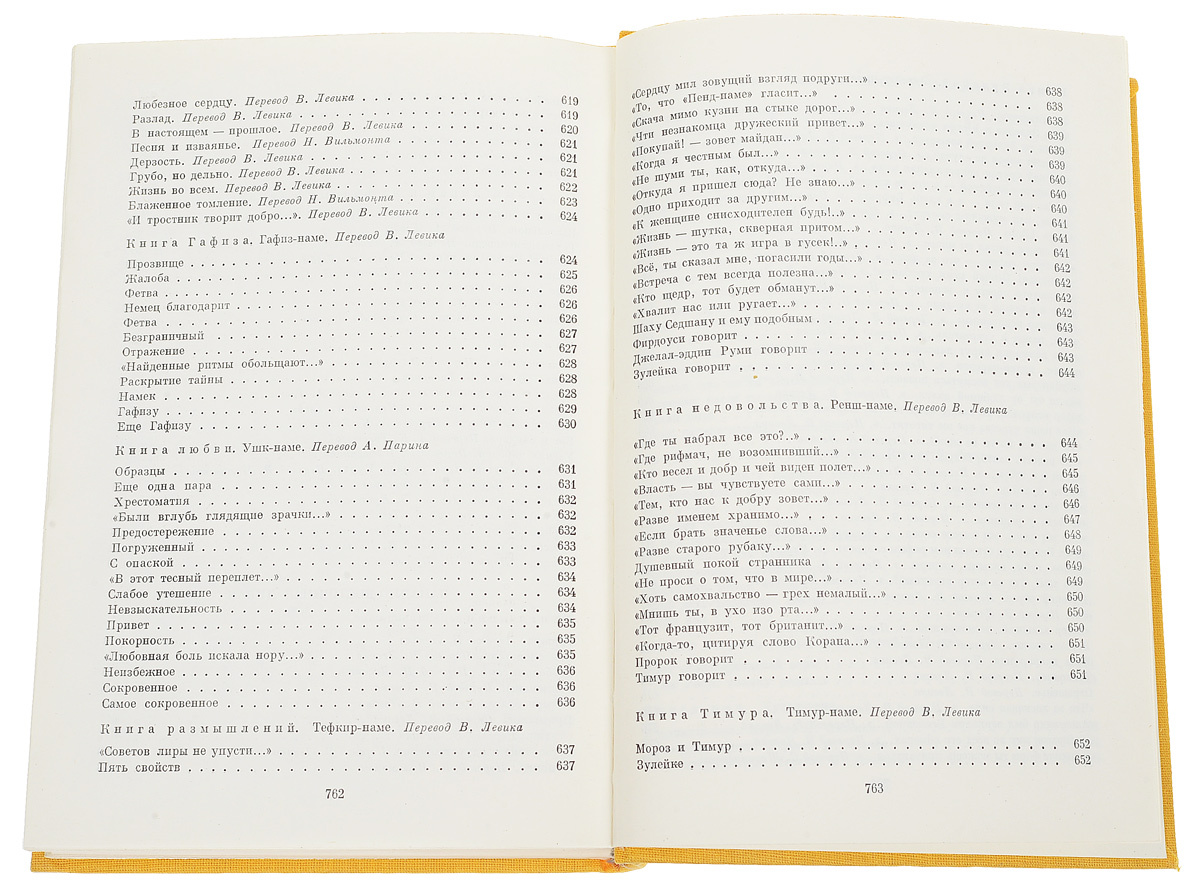 Любезное сердцу. Перевод В. Левика . . . 619
Разлад. Перевод В. Левика . . . 619
В настоящем — прошлое. Перевод В. Левика . . . 620
Песня и изваянье. Перевод Н. Вильмонта . . . 621
Дерзость. Перевод В. Левика . . . 621
Грубо, но дельно. Перевод В. Левика . . . 621
Жизнь во всем. Перевод В. Левика . . . 622
Блаженное томление. Перевод Н. Вильмонта . . . 623
«И тростник творит добро...». Перевод В. Левика . . . 624
Книга Гафиза. Гафиз-наме. Перевод В. Левика
Прозвище . . . 624
Жалоба . . . 625
Фетва . . . 626
Немец благодарит . . . 626
Фетва . . . 626
Безграничный . . . 627
Отражение . . . 627
«Найденные ритмы обольщают...» . . . 628
Раскрытие тайны . . . 628
Намек . . . 628
Гафизу . . . 629
Еще Гафизу . . . 630
Книга любви. Ушк-наме. Перевод А. Парина
Образцы . . . 631
Еще одна пара . . . 631
Хрестоматия . . . 632
«Были вглубь глядящие зрачки...» . . . 632
Предостережение . . . 632
Погруженный . . . 633
С опаской . . . 633
«В этот тесный переплет...» . . . 634
Слабое утешение . . . 634
Невзыскательность . . . 634
Привет . . . 635
Покорность . . . 635
«Любовная боль искала нору...» . . . 635
Неизбежное . . . 636
Сокровенное . . . 636
Самое сокровенное . . . 636
Книга размышлений. Тефкир-наме. Перевод В. Левика
«Советов лиры не упусти...» . . . 637
Пять свойств . . . 637
762
«Сердцу мил зовущий взгляд подруги...» . . . 638
«То, что «Пенд-наме» гласит...» . . . 638
«Скача мимо кузни на стыке дорог...» . . . 638
«Чти незнакомца дружеский привет...» . . . 639
«Покупай! — зовет майдан...» . . . 639
«Когда я честным был...» . . . 639
«Не шуми ты, как, откуда...» . . . 640
«Откуда я пришел сюда? Не знаю...» . . . 640
«Одно приходит за другим...» . . . 640
«К женщине снисходителен будь!..» . . . 641
«Жизнь — шутка, скверная притом...» . . . 641
«Жизнь — это та ж игра в гусек!..» . . . 641
«Всё, ты сказал мне, погасили годы...» . . . 642
«Встреча с тем всегда полезна...» . . . 642
«Кто щедр, тот будет обманут...» . . . 642
«Хвалит нас или ругает...» . . . 642
Шаху Седшану и ему подобным . . . 643
Фирдоуси говорит . . . 643
Джелал-эддин Руми говорит . . . 643
Зулейка говорит . . . 644
Книга недовольства. Ренш-наме. Перевод В. Левика
«Где ты набрал все это?..» . . . 644
«Где рифмач, не возомнивший...» . . . 645
«Кто весел и добр и чей виден полет...» . . . 645
«Власть — вы чувствуете сами...» . . . 646
«Тем, кто нас к добру зовет...» . . . 646
«Разве именем хранимо...» . . . 647
«Если брать значенье слова...» . . . 648
«Разве старого рубаку...» . . . 649
Душевный покой странника . . . 649
«Не проси о том, что в мире...» . . . 649
«Хоть самохвальство — грех немалый...» . . . 650
«Мнишь ты, в ухо изо рта...» . . . 650
«Тот французит, тот британит...» . . . 650
«Когда-то, цитируя слово Корана...» . . . 651
Пророк говорит . . . 651
Тимур говорит . . . 651
Книга Тимура. Тимур-наме. Перевод В. Левика
Мороз и Тимур . . . 652
Зулейке . . . 652
763